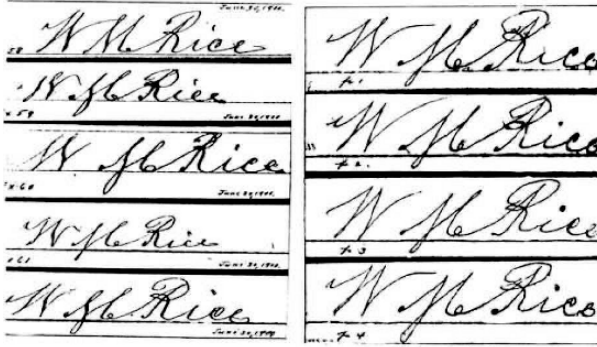 June 30, 1900.
W M Rice
58
W M Rice
59 June 30, 1900.
W M Rice
60 June 30, 1900.
W M Rice
61 June 30, 1900.
W M Rice
June 30, 1900
W M Rice
W M Rice
W M Rice
3
W M Rice
4